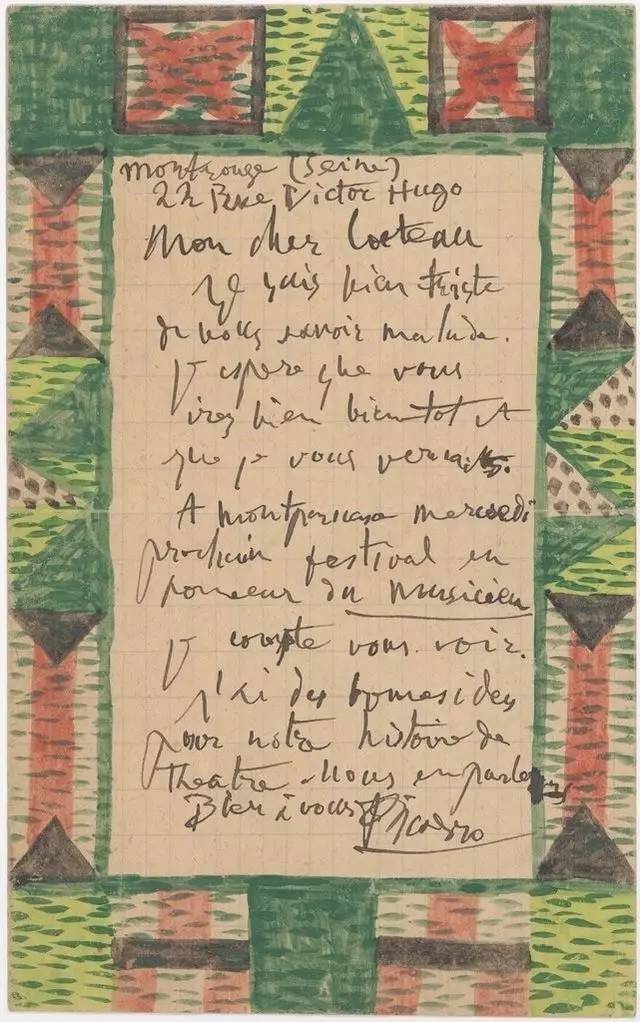 Montrouge (Seine)
22 Rue Victor Hugo
Mon cher Cocteau
Je suis bien triste
de vous savoir malade.
J espere que vous
irez bien bientot et
que je vous verrai.
A Montparnasse mercredi
prochain festival en
honneur du musicien
je compte vous voir.
J'ai des bonnes idees
pour notre histoire de
theatre. Nous en parlerons
Bien à vous Picasso